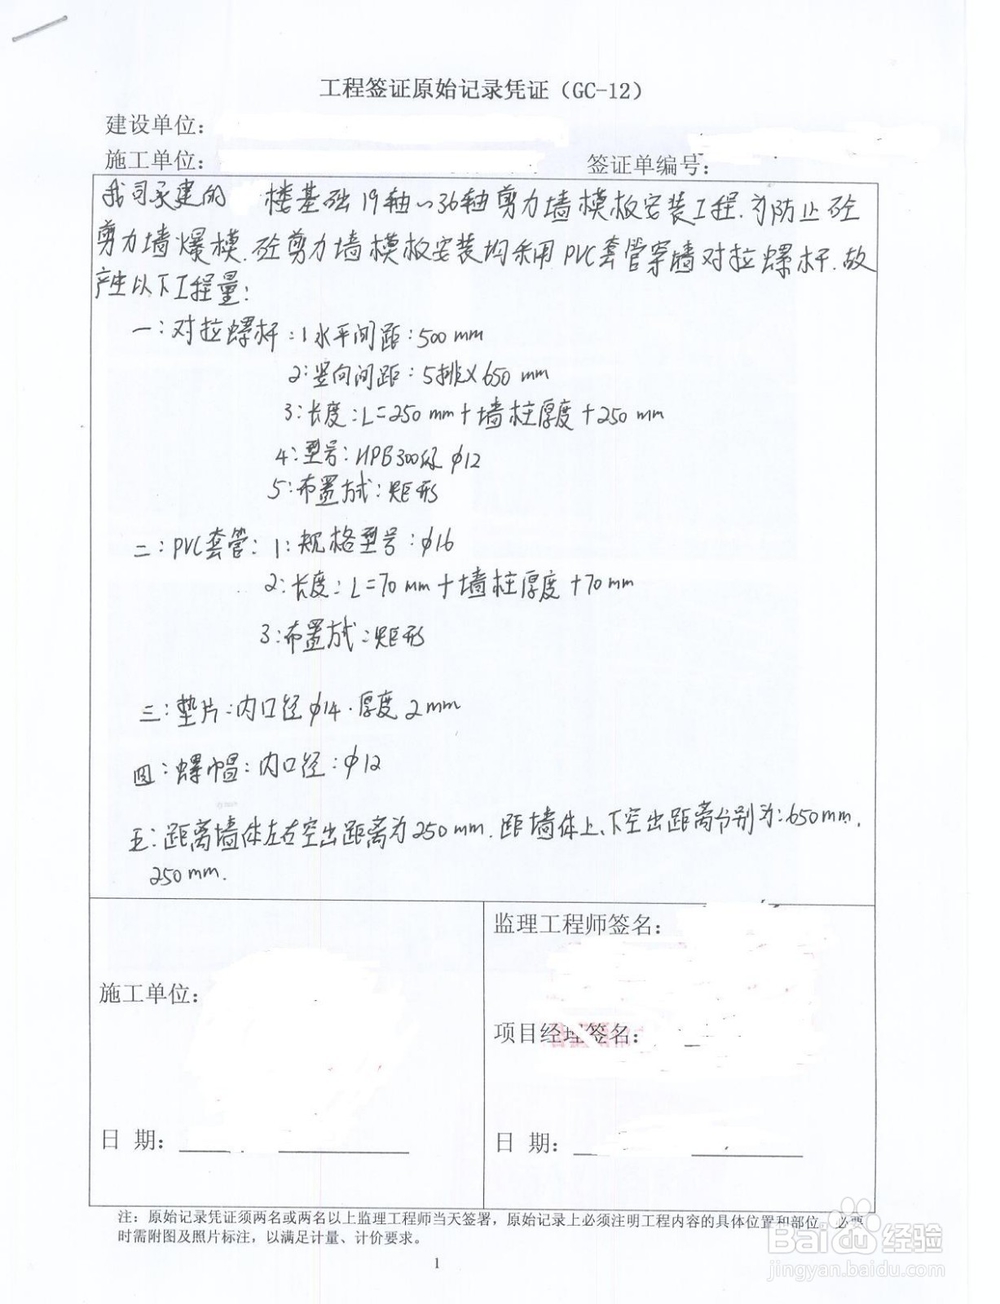 工程签证原始记录凭证（GC-12）
建设单位：
施工单位：
签证单编号：
我司承建的 楼基础19轴~36轴剪力墙模板安装工程.为防止砼
剪力墙爆模.砼剪力墙模板安装均采用PVC套管穿墙对拉螺杆.故
产生以下工程量：
一：对拉螺杆：1水平间距：500mm
2：竖向间距：5排×650mm
3：长度：L=250mm+墙柱厚度+250mm
4：型号：HPB300级 φ12
5：布置方式：矩形
二：PVC套管：1：规格型号：φ16
2：长度：L=70mm+墙柱厚度+70mm
3：布置方式：矩形
三：垫片：内口径φ14.厚度2mm
四：螺帽：内口径：φ12
五：距离墙体左右空出距离为250mm.距墙体上、下空出距离分别为：650mm.
250mm.
施工单位：
日 期：
监理工程师签名：
项目经理签名：
日 期：
注：原始记录凭证须两名或两名以上监理工程师当天签署，原始记录上必须注明工程内容的具体位置和部位。必要
时需附图及照片标注，以满足计量、计价要求。
1
Baidu经验
jingyan.baidu.com